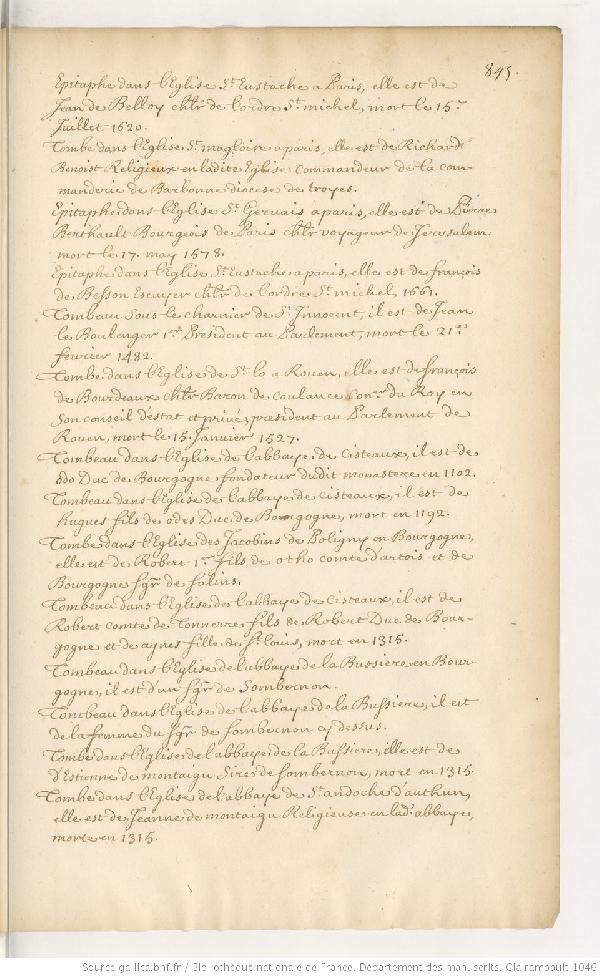 845.
Epitaphe dans l'Eglise St. Eustache a Paris, elle est de
Jean de Belloy chlr. de l'ordre St. michel, mort le 15e
Juillet 1620.
Tombe dans l'Eglise St. magloire a paris, elle est de Richard
Benoist Religieux en ladite Eglise commandeur de la com-
manderie de Barbonne diocese de troyes.
Epitaphe dans l'Eglise St. Gervais a paris, elle est de Pierre
Berthault Bourgeois de Paris chlr. voyageur de Jerusalem
mort le 17. may 1578.
Epitaphe dans l'Eglise St. Eustache a paris, elle est de françois
de Besson Escuyer chlr. de l'ordre St. michel, 1661.
Tombeau sous le charnier de St. Innocent, il est de Jean
le Boulanger 1er. President au Parlement, mort le 21
fevrier 1482.
Tombe dans l'Eglise de St. lo a Rouen, elle est de françois
de Bourdeaux chlr. Baron de coulance conr. du Roy en
son conseil d'estat et privé, president au Parlement de
Rouen, mort le 15. Janvier 1527.
Tombeau dans l'Eglise de l'abbaye de Cisteaux, il est de
odo Duc de Bourgogne fondateur dudit monastere en 1102.
Tombeau dans l'Eglise de l'abbaye de cisteaux, il est de
hugues fils de odes Duc de Bourgogne, mort en 1192.
Tombe dans l'Eglise des Jacobins de Poligny en Bourgogne,
elle est de Robert 1er. fils de otho comte d'artois et de
Bourgogne sgr. de salins.
Tombeau dans l'Eglise de l'abbaye de Cisteaux, il est de
Robert comte de Tonnerre fils de Robert Duc de Bour-
gogne et de agnes fille de St. louis, mort en 1315.
Tombeau dans l'Eglise de l'abbaye de la Bussiere en Bour-
gogne, il est d'un sgr. de Sombernon.
Tombeau dans l'Eglise de l'abbaye de la Bussiere, il est
de la femme du sgr. de sombernon cy dessus.
Tombe dans l'Eglise de l'abbaye de la Bussiere, elle est de
d'Estienne de montaigu Sire de sombernon, mort en 1315.
Tombe dans l'Eglise de l'abbaye de St. andoche d'authun,
elle est de Jeanne de montaigu Religieuse en lad. abbaye,
morte en 1315.
Source gallica.bnf.fr / Bibliothèque nationale de France. Département des manuscrits. Clairambault 1046